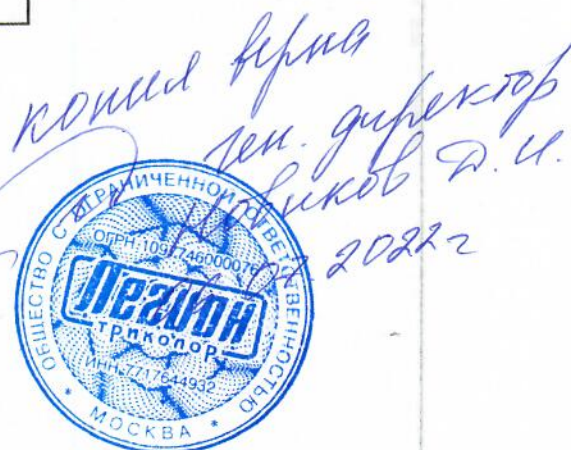 копия верна
ген. директор
Новиков Д.И.
07.2022г
ОБЩЕСТВО С ОГРАНИЧЕННОЙ ОТВЕТСТВЕННОСТЬЮ
ОГРН 109774600007
Легион
ТРИКОЛОР
ИНН 7717644932
* МОСКВА *